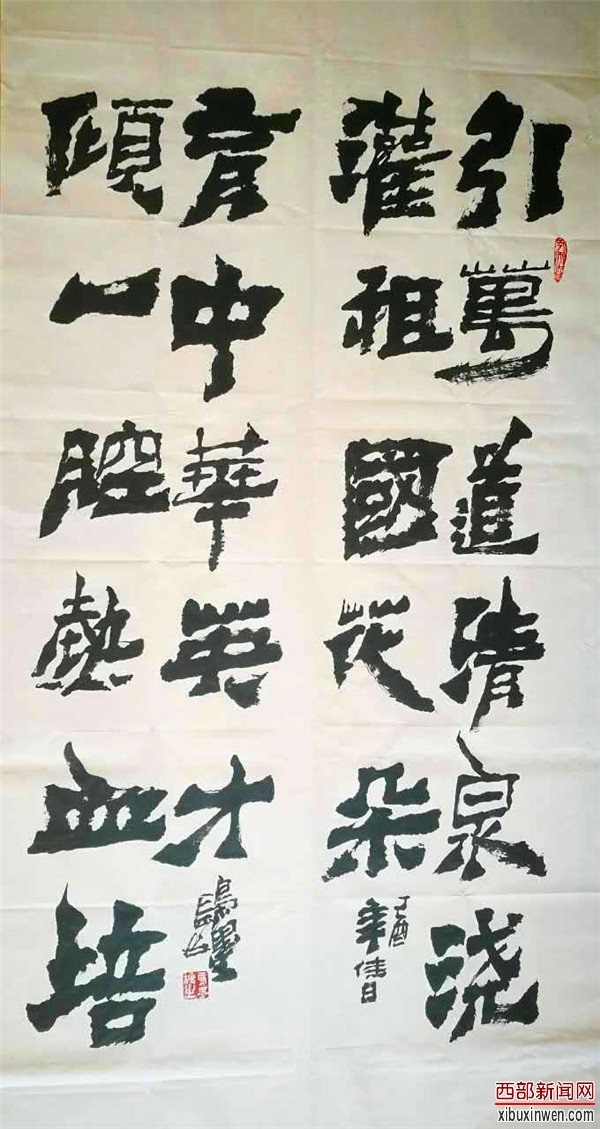 引萬道清泉浇
灌祖國花朵
丁酉年
育中華英才
傾一腔熱血培
西部新闻网
xibuxinwen.com